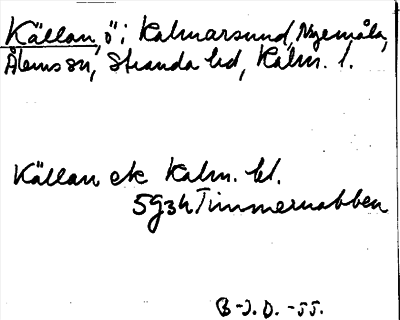 Källan, ö i Kalmarsund, Nyemåla,
Ålems sn, Stranda hd, Kalm. l.
Källan ek Kalm. bl.
5g34 Timmernabben
B-J.D. -55.